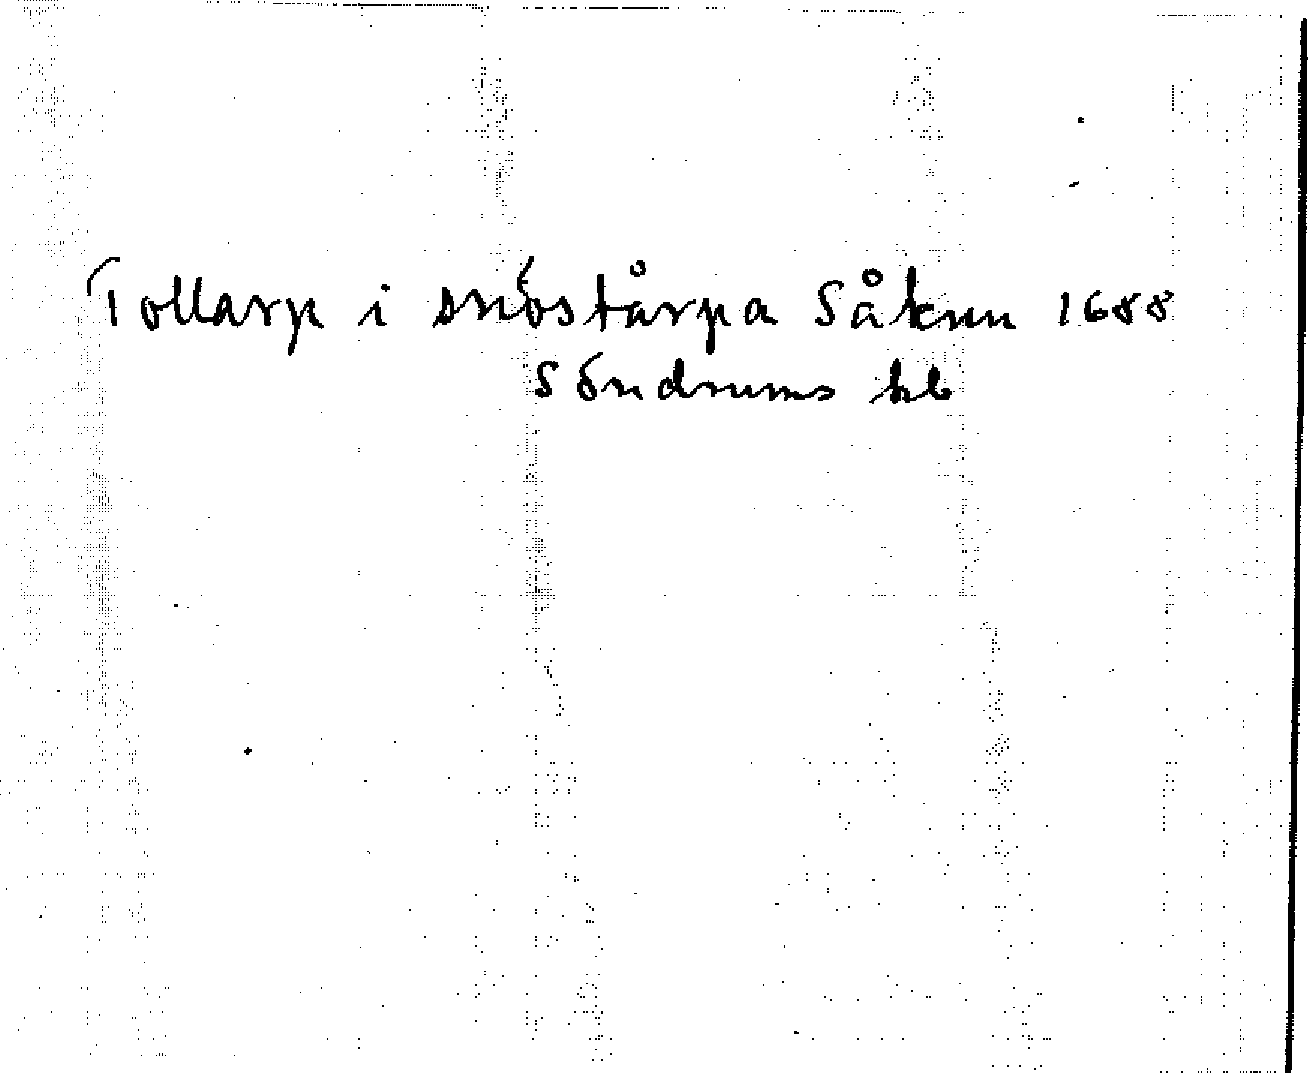 Tollarp i snöstårpa Såknn 1688
Söndrums kb